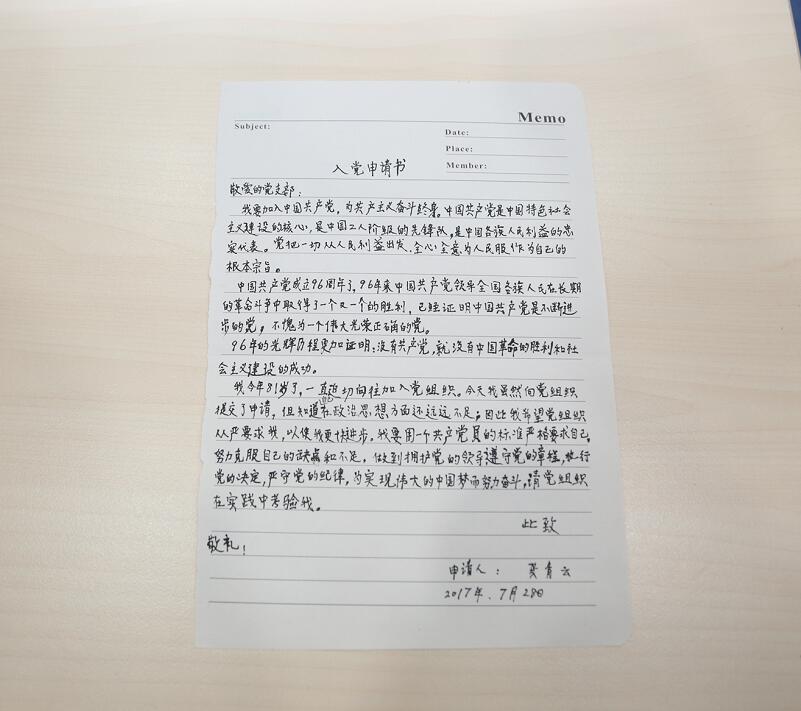 Memo
Subject:
Date:
Place:
Member:
入党申请书
敬爱的党支部：
我要加入中国共产党，为共产主义奋斗终身。中国共产党是中国特色社会
主义建设的核心，是中国工人阶级的先锋队，是中国各族人民利益的忠
实代表。党把一切从人民利益出发、全心全意为人民服作为自己的
根本宗旨。
中国共产党成立96周年了，96年来中国共产党领导全国各族人民在长期
的革命斗争中取得了一个又一个的胜利，已经证明中国共产党是不断进
步的党，不愧为一个伟大光荣正确的党。
96年的光辉历程更加证明：没有共产党，就没有中国革命的胜利和社
会主义建设的成功。
我今年81岁了，一直迫切向往加入党组织。今天我虽然向党组织
提交了申请，但知道在政治思想方面还远远不足，因此我希望党组织
从严要求我，以使我更快进步。我要用一个共产党员的标准严格要求自己，
努力克服自己的缺点和不足，做到拥护党的领导遵守党的章程，执行
党的决定，严守党的纪律，为实现伟大的中国梦而努力奋斗，请党组织
在实践中考验我。
此致
敬礼！
申请人： 青云
2017年.7月28日